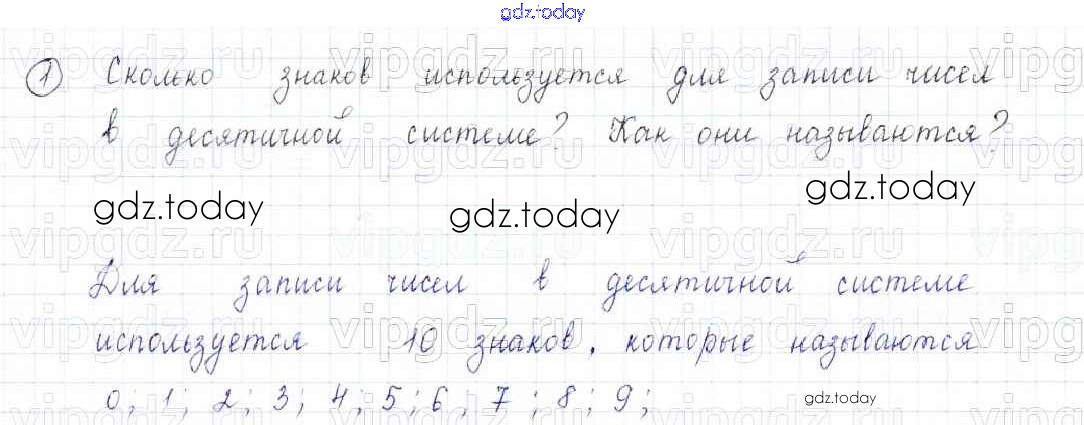 gdz.today
1 Сколько знаков используется для записи чисел
в десятичной системе? Как они называются?
gdz.today gdz.today gdz.today
Для записи чисел в десятичной системе
используется 10 знаков, которые называются
0; 1; 2; 3; 4; 5; 6, 7; 8; 9;
gdz.today
vipgdz.ru